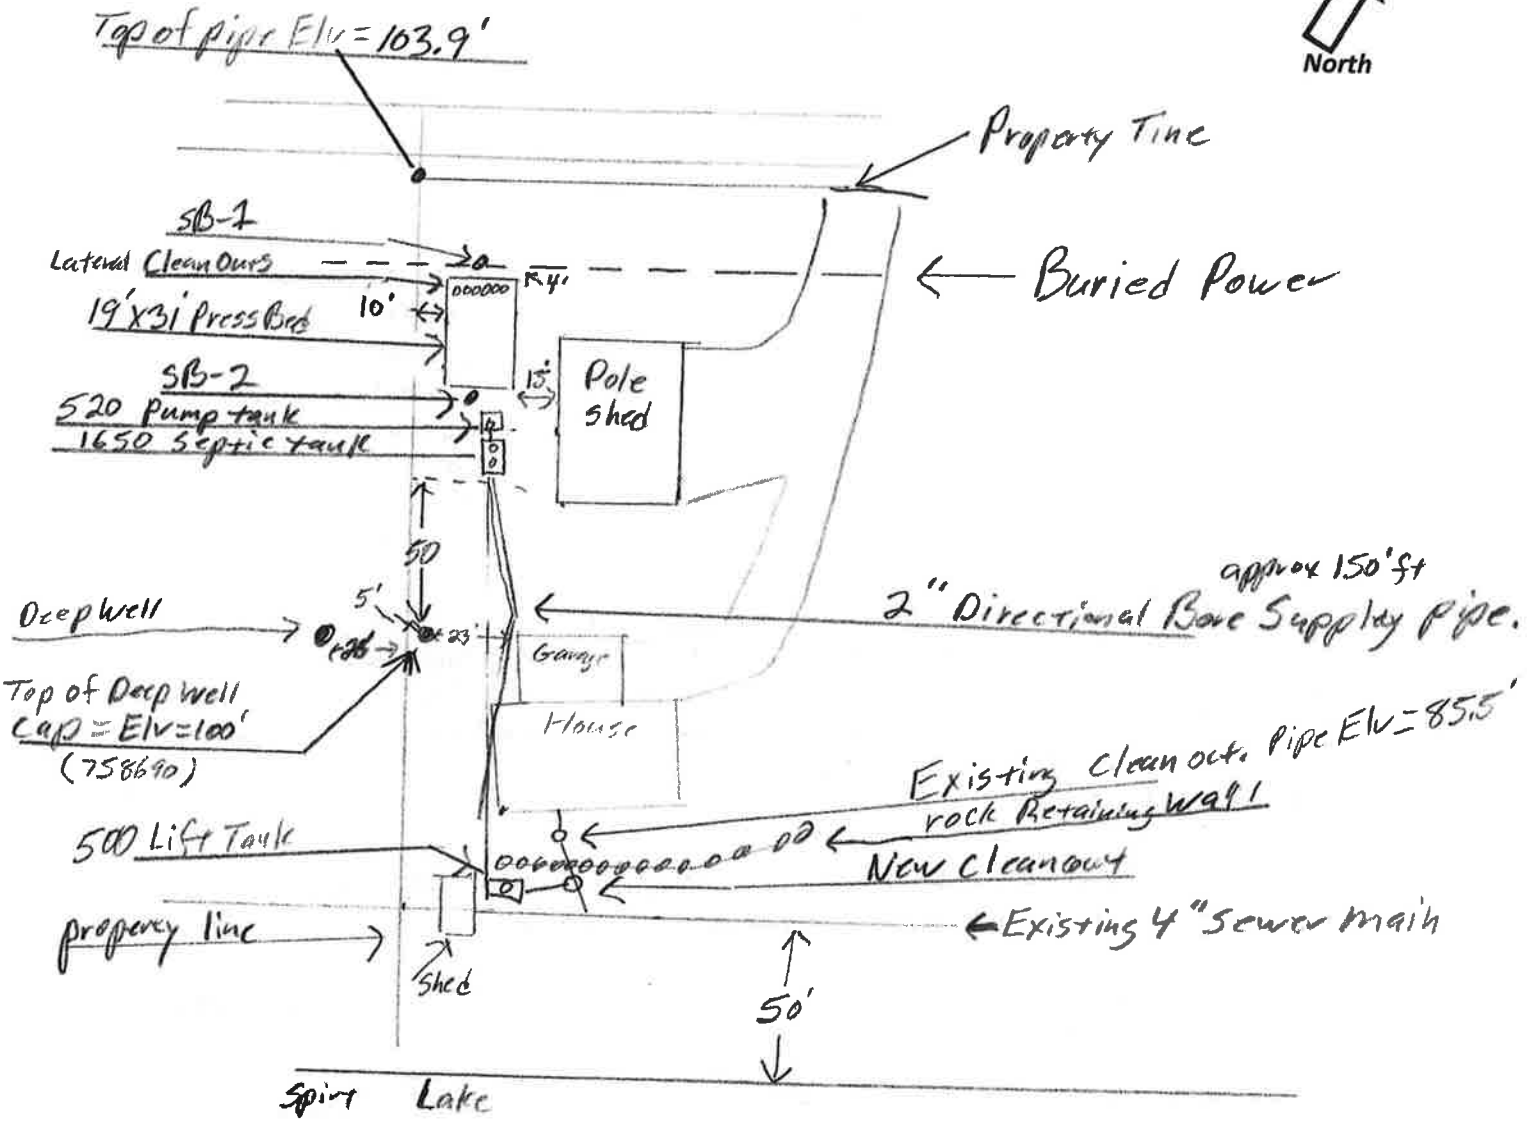 Top of pipe Elv = 103.9'
North
Property Tine
SB-1
Lateral Clean Outs
4'
Buried Power
10'
19'x31' Press Bed
SB-2
15'
Pole
shed
520 Pump tank
1650 Septic tank
50
approx 150' ft
2" Directional Bore Supplty pipe.
5'
Deep Well
23'
Garage
Top of Deep well
Cap = Elv=100'
(758690)
House
Existing Clean out. Pipe Elv = 85.5'
rock Retaining Wall
500 Lift Tank
New Cleanout
property line
Existing 4" Sewer main
Shed
50'
Spirit Lake